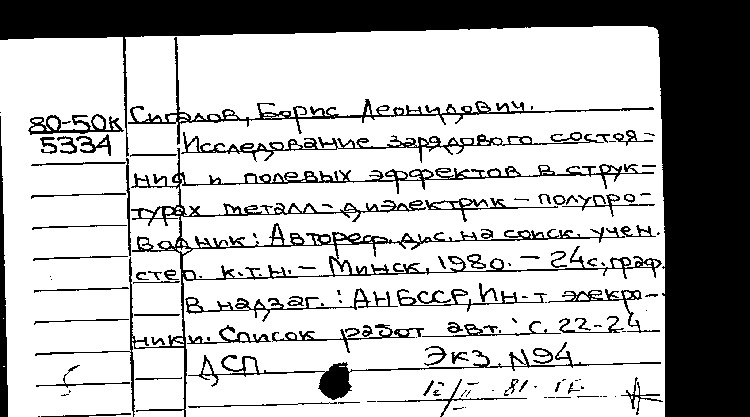 80-50к
5334
Сигалов, Борис Леонидович.
Исследование зарядового состоя-
ния и полевых эффектов в струк-
турах металл-диэлектрик-полупро-
водник: Автореф. дис. на соиск. учен.
степ. к.т.н. - Минск, 1980. - 24с., граф.
В надзаг.: АН БССР, Ин-т электро-
ники. Список работ авт.: с. 22-24
ДСП. Экз. N94.
12/II-81.